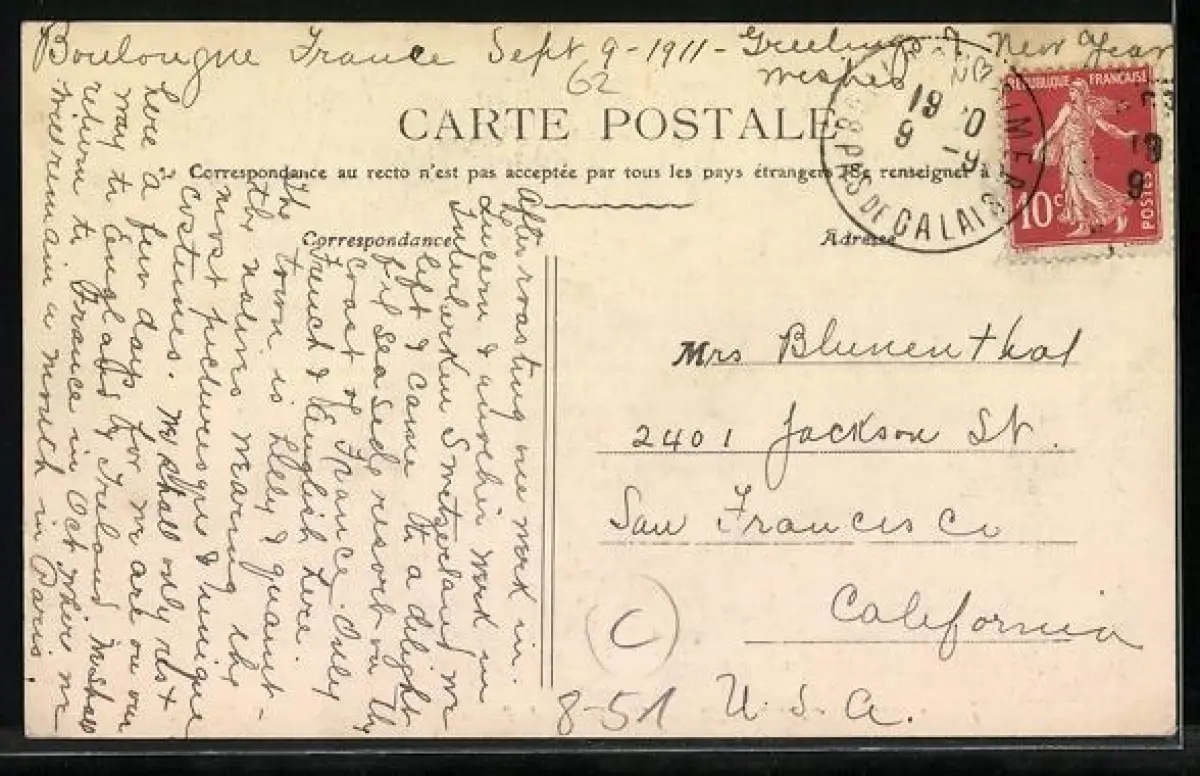 Boulougne France Sept 9-1911- Greetings & New Year
wishes
62
CARTE POSTALE
Correspondance au recto n'est pas acceptée par tous les pays étrangers (Se renseigner à
Correspondance
Adresse
PAS DE CALAIS
REPUBLIQUE FRANÇAISE
10 c
POSTES
Mrs Blumenthal
2401 Jackson St.
San Francisco
California
U.S.A.
C
8-51
After one week in
Lucern & another week in
Interlarken Switzerland we
left & came to a delight
ful seaside resort on the
coast of France. Only
French & English here.
The town is & quaint
the natives wearing the
most picturesque & unique
costumes. We shall only rest
here a few days for we are on our
way to England & Ireland We shall
return to France in Oct where we
remain a month in Paris.